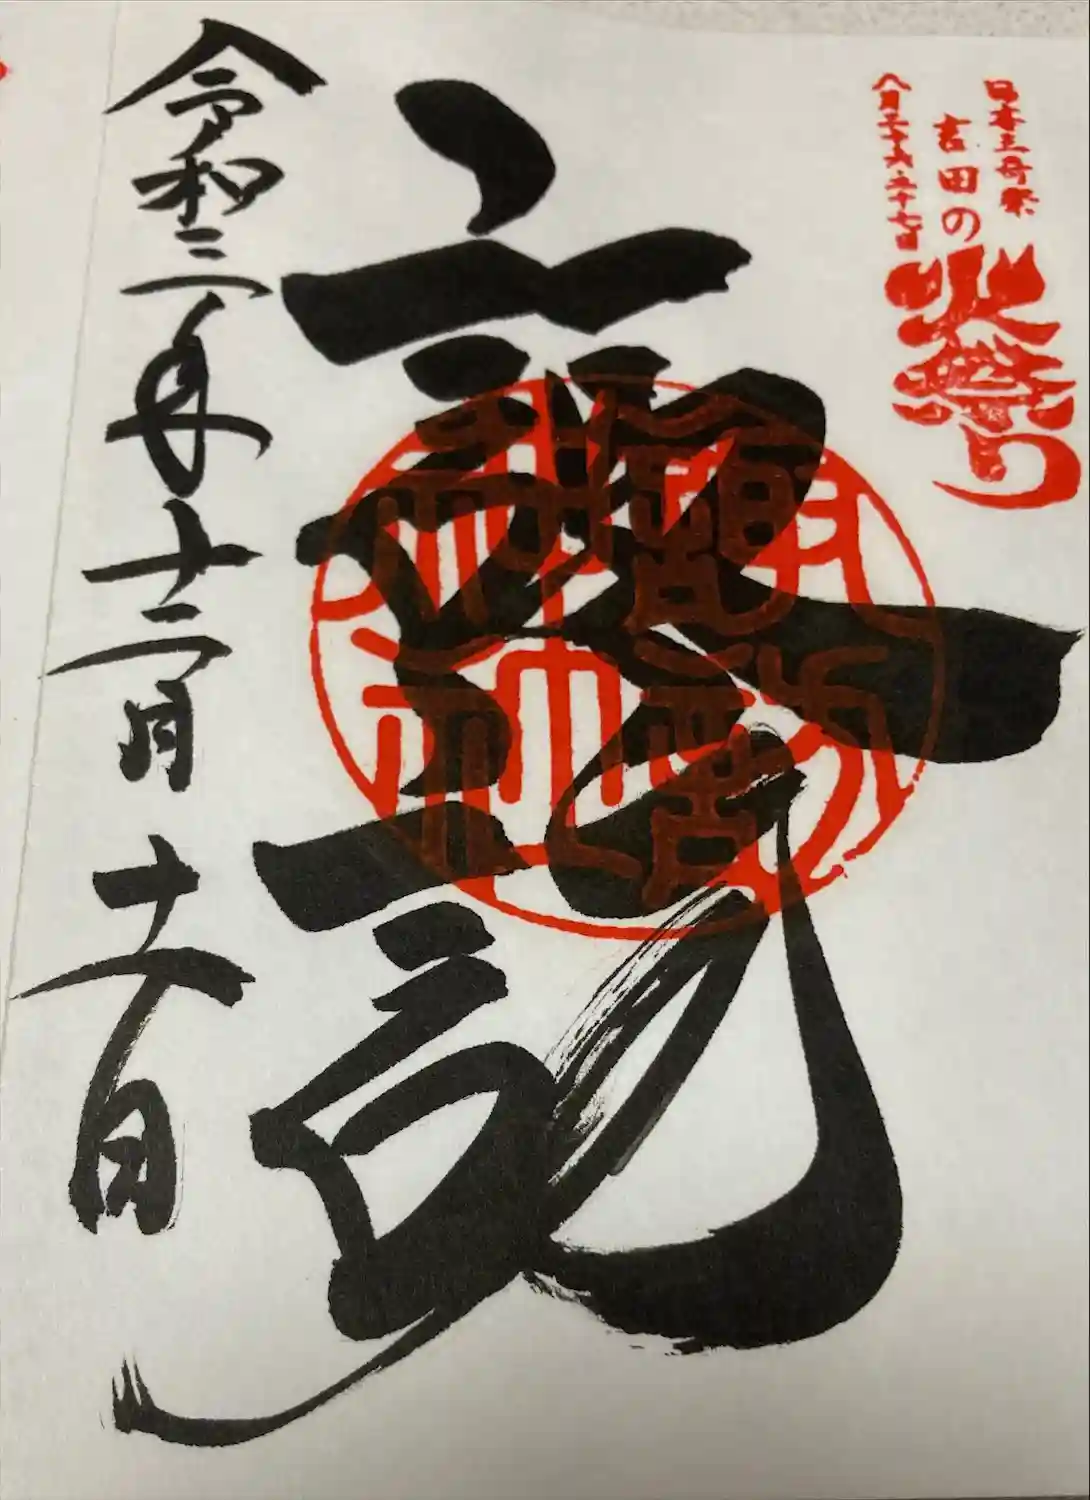 日本三奇祭
吉田の火祭り
八月二十六・二十七日
諏訪
諏訪
神社
令和二年十二月十六日